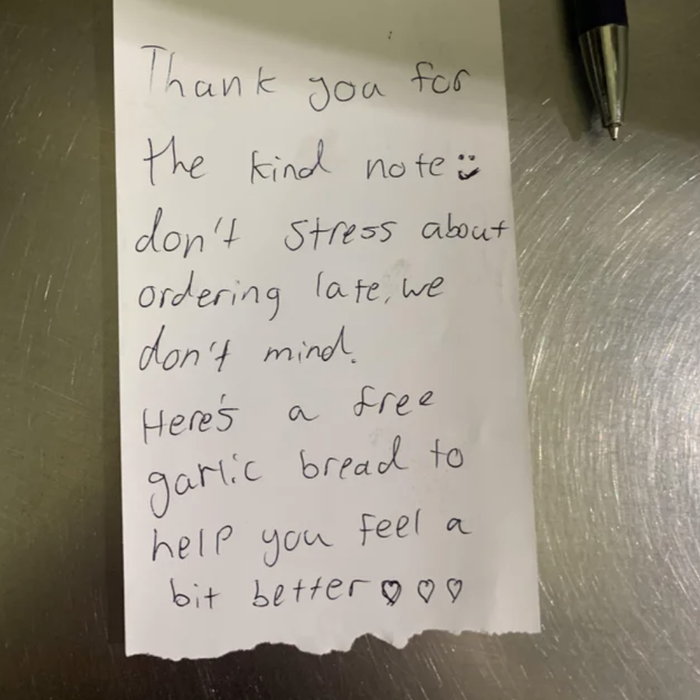 Thank you for
the kind note :)
don't stress about
ordering late, we
don't mind.
Here's a free
garlic bread to
help you feel a
bit better ♡ ♡ ♡